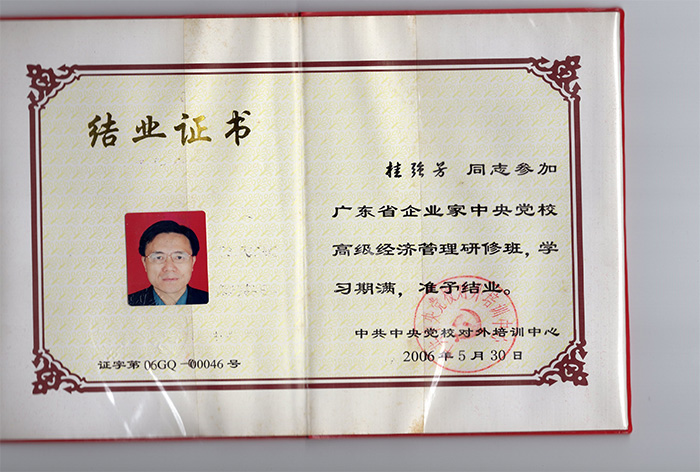 结业证书
桂强芳 同志参加
广东省企业家中央党校
高级经济管理研修班，学
习期满，准予结业。
中共中央党校对外培训中心
2006年5月30日
证字第06GQ-00046号